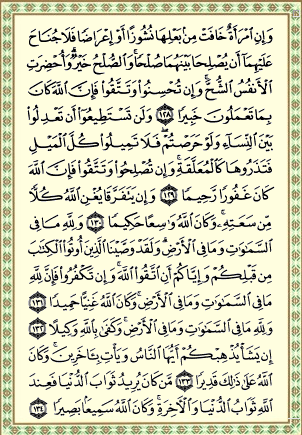 وَإِنِ ٱمْرَأَةٌ خَافَتْ مِنۢ بَعْلِهَا نُشُوزًا أَوْ إِعْرَاضًا فَلَا جُنَاحَ
عَلَيْهِمَآ أَن يُصْلِحَا بَيْنَهُمَا صُلْحًا ۚ وَٱلصُّلْحُ خَيْرٌ ۗ وَأُحْضِرَتِ
ٱلْأَنفُسُ ٱلشُّحَّ ۚ وَإِن تُحْسِنُوا۟ وَتَتَّقُوا۟ فَإِنَّ ٱللَّهَ كَانَ
بِمَا تَعْمَلُونَ خَبِيرًا ﴿١٢٨﴾ وَلَن تَسْتَطِيعُوٓا۟ أَن تَعْدِلُوا۟
بَيْنَ ٱلنِّسَآءِ وَلَوْ حَرَصْتُمْ ۖ فَلَا تَمِيلُوا۟ كُلَّ ٱلْمَيْلِ
فَتَذَرُوهَا كَٱلْمُعَلَّقَةِ ۚ وَإِن تُصْلِحُوا۟ وَتَتَّقُوا۟ فَإِنَّ ٱللَّهَ
كَانَ غَفُورًا رَّحِيمًا ﴿١٢٩﴾ وَإِن يَتَفَرَّقَا يُغْنِ ٱللَّهُ كُلًّا
مِّن سَعَتِهِۦ ۚ وَكَانَ ٱللَّهُ وَٰسِعًا حَكِيمًا ﴿١٣٠﴾ وَلِلَّهِ مَا فِى
ٱلسَّمَٰوَٰتِ وَمَا فِى ٱلْأَرْضِ ۗ وَلَقَدْ وَصَّيْنَا ٱلَّذِينَ أُوتُوا۟ ٱلْكِتَٰبَ
مِن قَبْلِكُمْ وَإِيَّاكُمْ أَنِ ٱتَّقُوا۟ ٱللَّهَ ۚ وَإِن تَكْفُرُوا۟ فَإِنَّ لِلَّهِ
مَا فِى ٱلسَّمَٰوَٰتِ وَمَا فِى ٱلْأَرْضِ ۚ وَكَانَ ٱللَّهُ غَنِيًّا حَمِيدًا ﴿١٣١﴾
وَلِلَّهِ مَا فِى ٱلسَّمَٰوَٰتِ وَمَا فِى ٱلْأَرْضِ ۚ وَكَفَىٰ بِٱللَّهِ وَكِيلًا ﴿١٣٢﴾
إِن يَشَأْ يُذْهِبْكُمْ أَيُّهَا ٱلنَّاسُ وَيَأْتِ بِـَٔاخَرِينَ ۚ وَكَانَ
ٱللَّهُ عَلَىٰ ذَٰلِكَ قَدِيرًا ﴿١٣٣﴾ مَّن كَانَ يُرِيدُ ثَوَابَ ٱلدُّنْيَا فَعِندَ
ٱللَّهِ ثَوَابُ ٱلدُّنْيَا وَٱلْـَٔاخِرَةِ ۚ وَكَانَ ٱللَّهُ سَمِيعًۢا بَصِيرًا ﴿١٣٤﴾